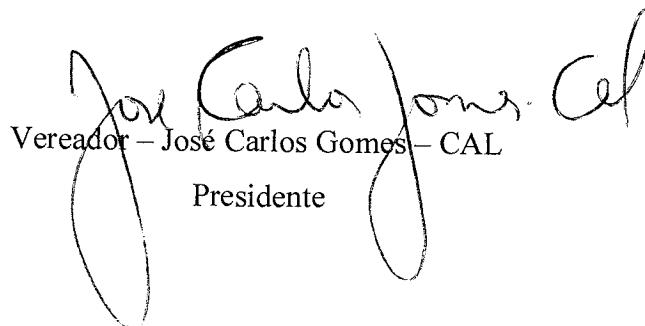 José Carlos Gomes Cal
Vereador – José Carlos Gomes – CAL
Presidente